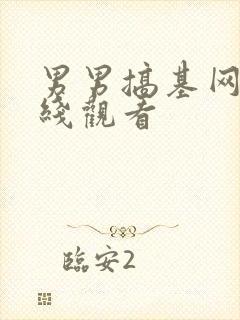 男男搞基网
綫觀看
臨安2